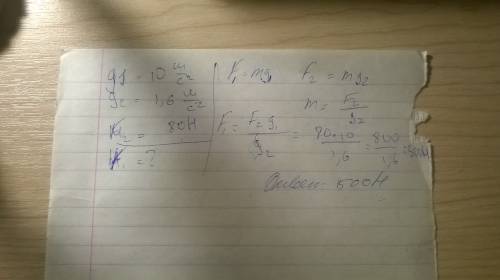 g1 = 10 м/с2
g2 = 1,6 м/с2
F2 = 80Н
F1 = ?
F1 = mg1 F2 = mg2
m = F2/g2
F1 = F2 g1/g2 = 80·10/1,6 = 800/1,6 = 500Н
Ответ: 500Н